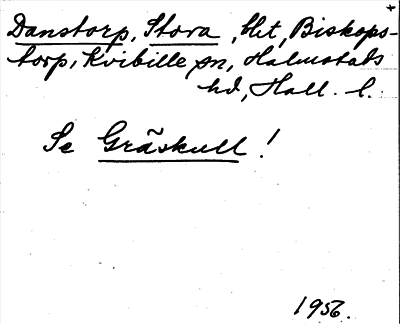 Danstorp, Stora, hlt, Biskops-
torp, Kvibille sn, Halmstads
hd, Hall. l.
Se Gråskull!
1956.